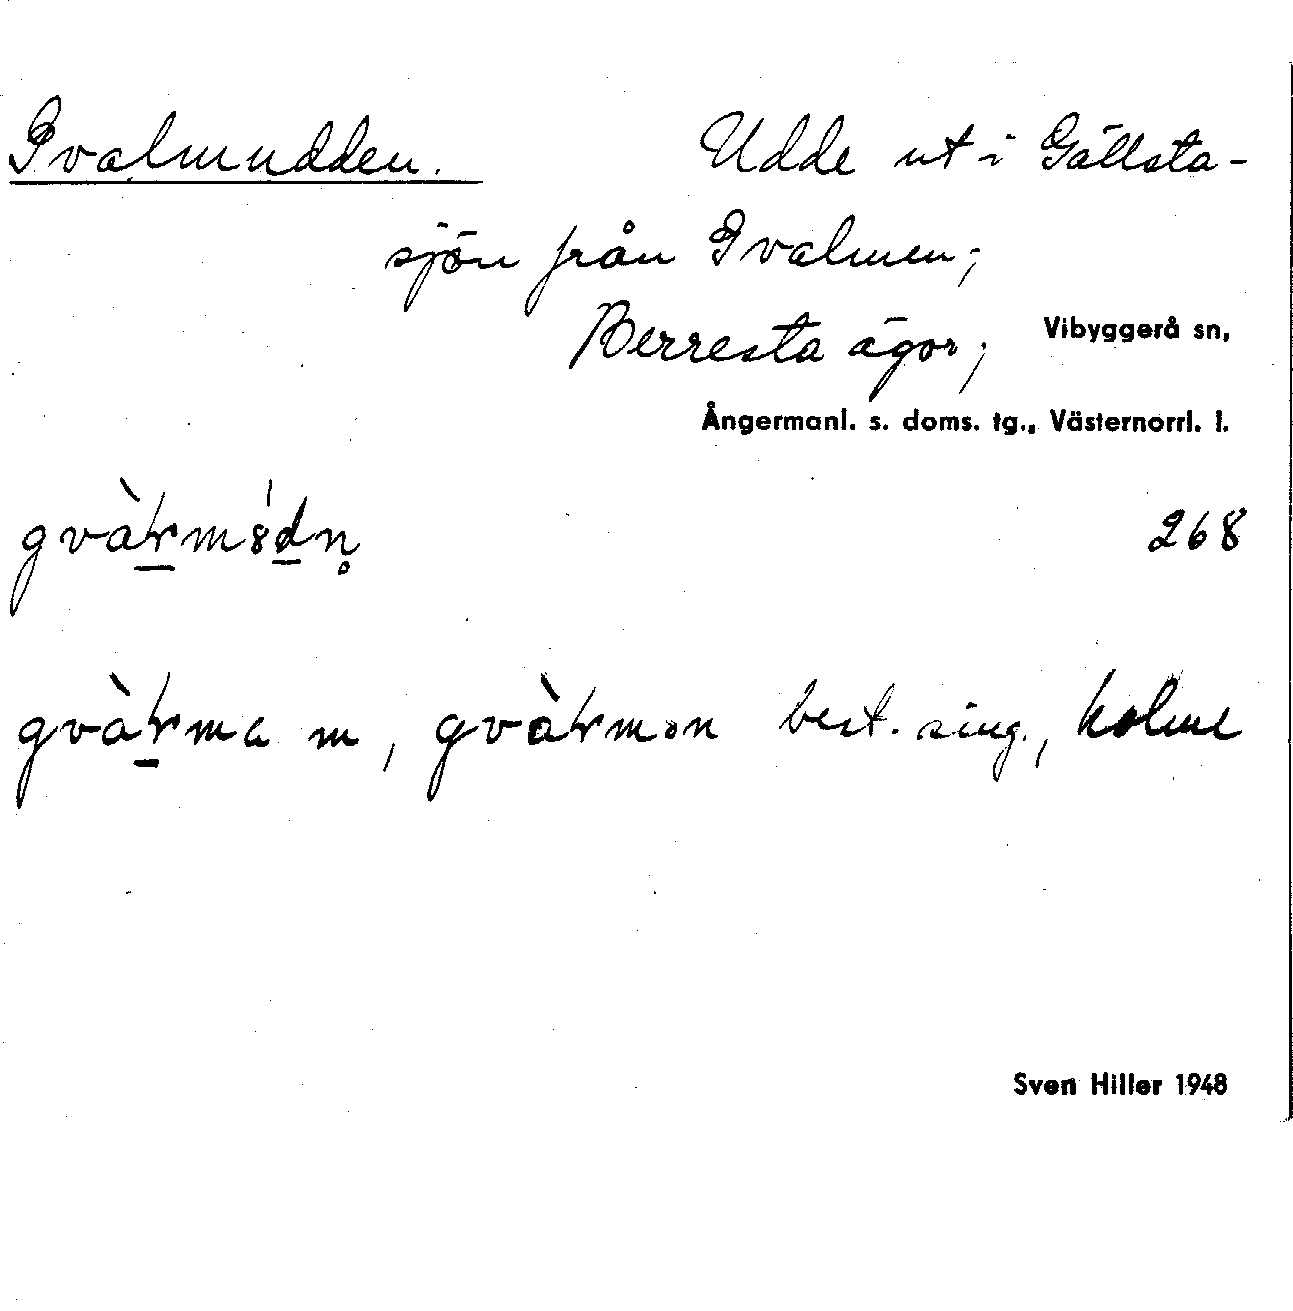 Gvalmudden. Udde ut i Gällsta-
sjön från Gvalmen;
Berresta ägor; Vibyggerå sn,
Ångermanl. s. doms. tg., Västernorrl. l.
268
m, best. sing., holme
Sven Hiller 1948